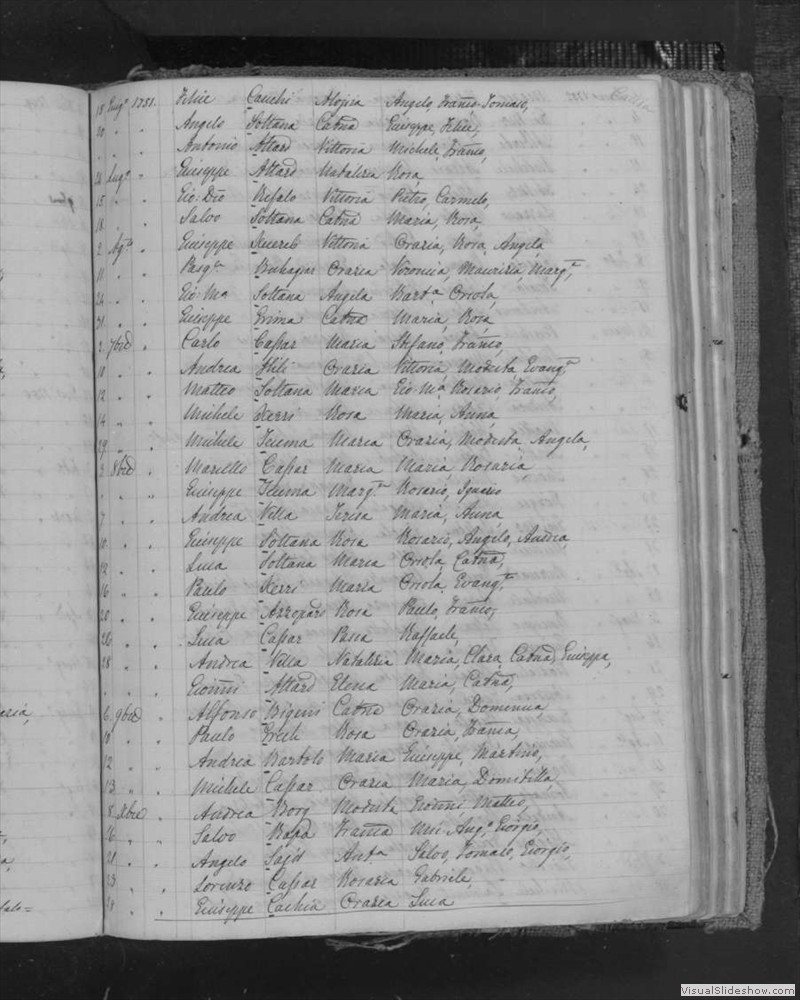 18 Lug.º 1751. Felice Cauchi Aloisia Angelo, Franco, Tomaso,
20 " " Angelo Soltana Catna Giuseppe, Felice,
" " Antonio Attard Vittoria Michele, Franco,
Giuseppe Attard Natalizia Rosa,
15 " " Gio: Dño Refalo Vittoria Pietro, Carmelo,
18 " " Salvo Soltana Catna Maria, Rosa,
2 Giuseppe Xuereb Vittoria Orazia, Rosa, Angela,
11 " " Pasq.le Buhagiar Orazia Veronica, Maurizia, Marg.ª,
24 " " Gio: Mª Soltana Angela Barb.ª Orsola,
31 " " Giuseppe Grima Catna Maria, Rosa
2 7bre " Carlo Cassar Maria Stefano, Franco,
10 " " Andrea Hili Orazia Vittoria, Modesta, Evang.ª
12 " " Matteo Soltana Maria Gio: Mª Rosario, Franco,
14 " " Michele Xerri Rosa Maria, Anna,
29 " " Michele Teuma Maria Orazia, Modesta, Angela,
3 8bre " Marcello Cassar Maria Maria, Rosaria,
" " Giuseppe Teuma Marg.ª Rosario, Ignazio
7 " " Andrea Vella Teresa Maria, Anna
10 " " Giuseppe Soltana Rosa Rosario, Angelo, Andrea,
12 " " Luca Soltana Maria Orsola, Catna,
16 " " Paulo Xerri Maria Orsola, Evang.ª
20 " " Giuseppe Azzopardi Rosa Paulo, Franco,
26 " " Luca Cassar Pasca Raffaele,
28 " " Andrea Vella Natalizia Maria, Clara, Catna, Giuseppa,
" " Gionni Attard Elena Maria, Catna,
6 9bre " Alfonso Bigeni Catna Orazia, Domenica,
10 " " Paulo Grech Rosa Orazia, Franca,
12 " " Andrea Bartolo Maria Giuseppe, Martino,
13 " " Michele Cassar Orazia Maria, Domitilla,
8 Xbre " Andrea Borg Modesta Gionni Matteo,
16 " " Salvo Franca Mic: Ang.º, Giorgio,
21 " " Angelo Ant.ª Salvo, Tomaso, Giorgio,
23 " " Lorenzo Cassar Rosaria Gabriele,
" " Giuseppe Cachia Orazia Luca
VisualSlideshow.com